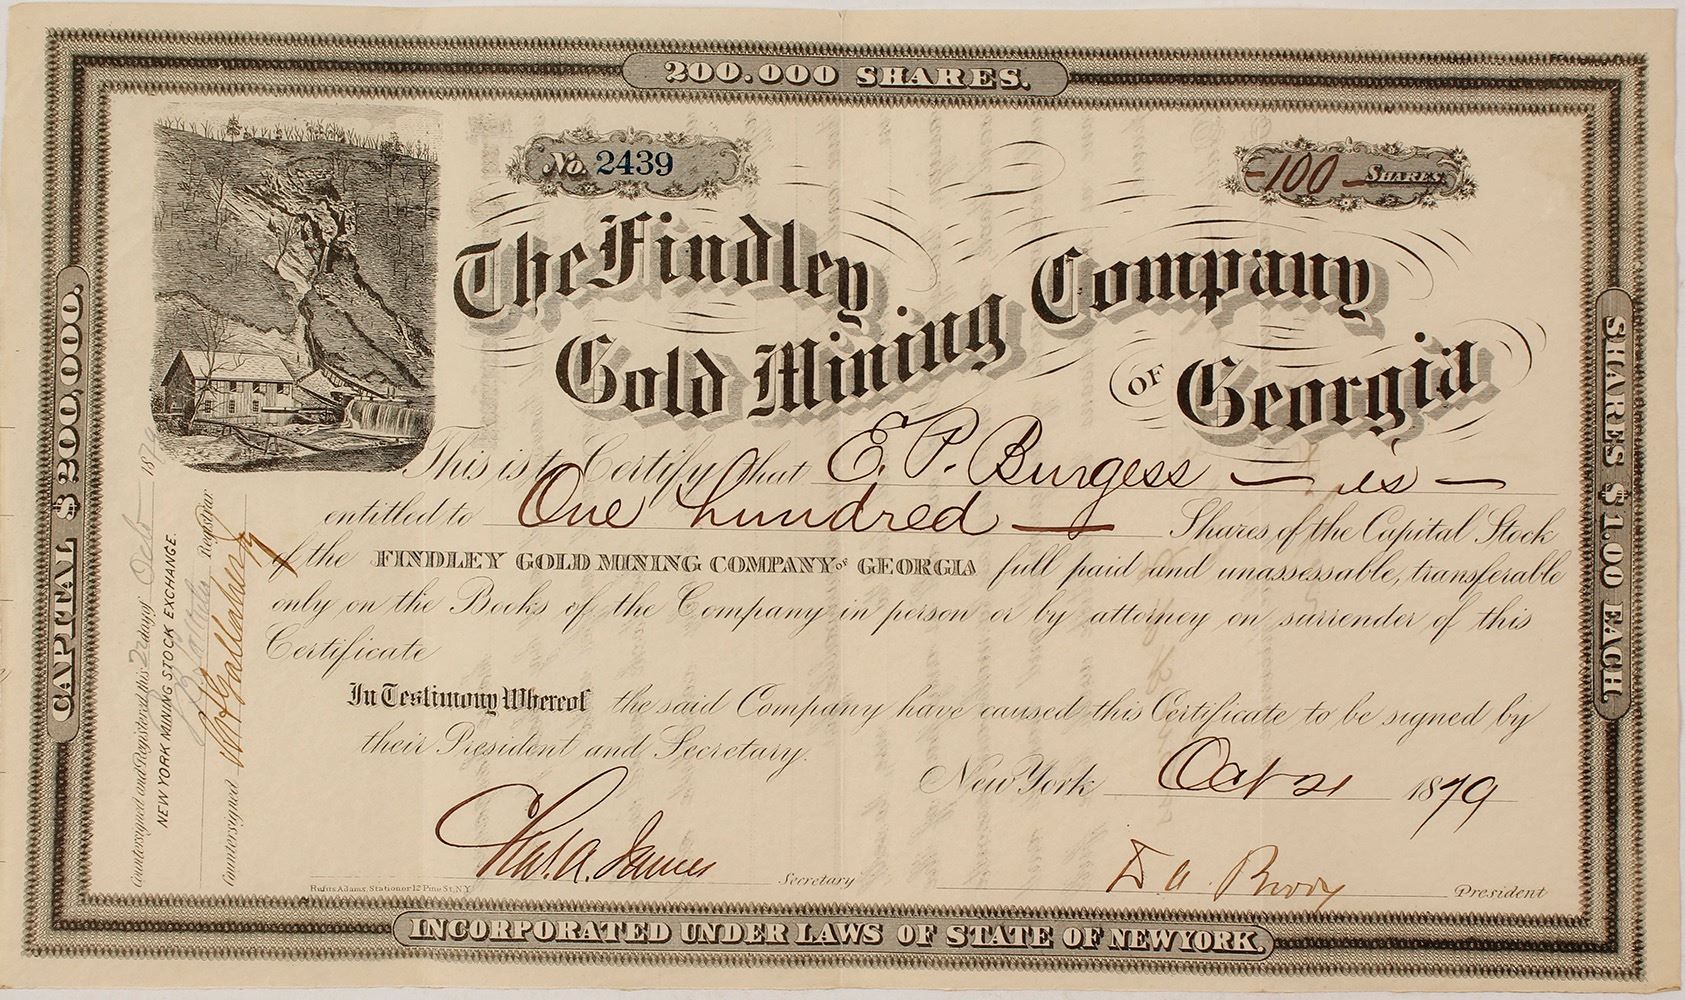 200.000 SHARES.
No. 2439
-100- SHARES
The Findley
Gold Mining
Company
OF Georgia
This is to Certify that E. P. Burgess — is —
entitled to One hundred — Shares of the Capital Stock
of the FINDLEY GOLD MINING COMPANY OF GEORGIA full paid and unassessable, transferable
only on the Books of the Company in person or by attorney on surrender of this
Certificate
In Testimony Whereof the said Company have caused this Certificate to be signed by
their President and Secretary.
New York Oct 21 1879
Chas. A. James Secretary
D A President
Rufus Adams, Stationer 12 Pine St, N.Y.
INCORPORATED UNDER LAWS OF STATE OF NEW YORK.
CAPITAL $200,000.
SHARES $1.00 EACH.
Countersigned and Registered, this 22 day of Oct 1879
NEW YORK MINING STOCK EXCHANGE.
Registrar
Countersigned